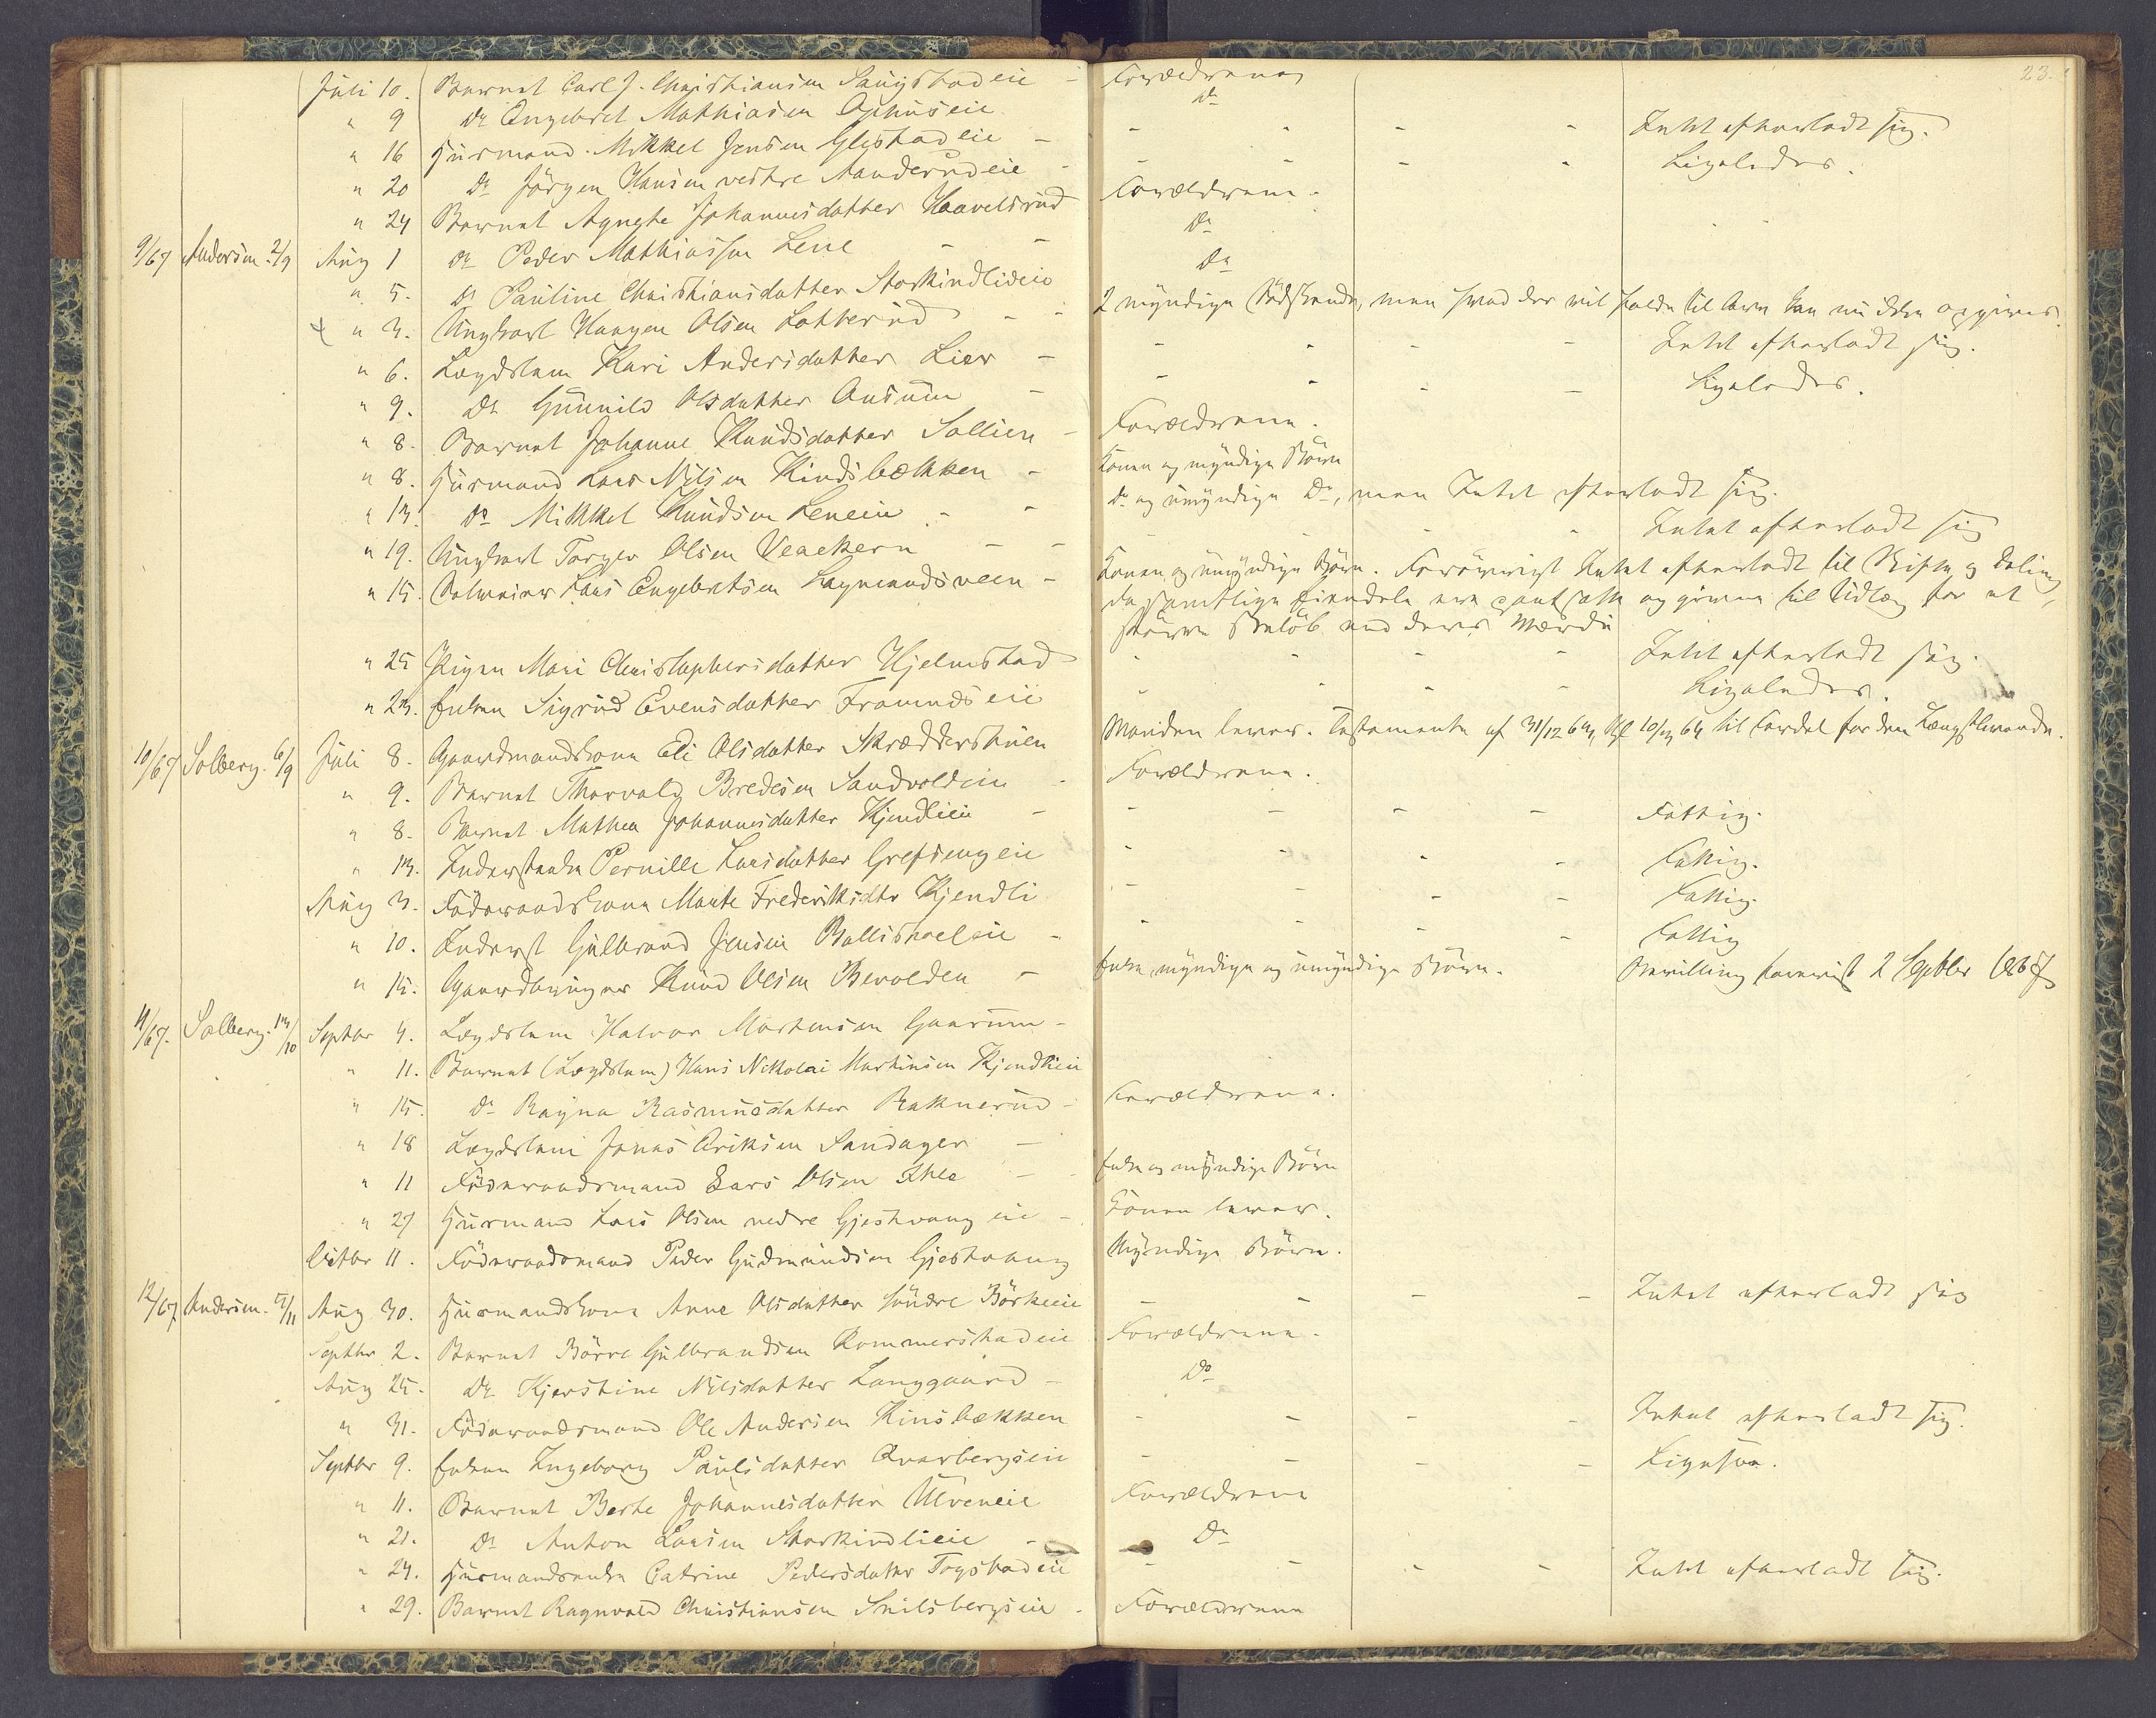 23.
Juli 10. Barnet Carl J. Christiansen Saugstadeie - Forældrene
" 9 Do Engebret Mathiasen Ophuseie Do
" 16 Huusmand Mikkel Jensen Glestadeie - - - - - Intet efterladt sig.
" 20 Do Jørgen Hansen vestre Aanderudeie - - - - - Ligeledes.
" 24 Barnet Agnethe Johannesdatter Haavelsrud Forældrene.
9/67 Andersen 2/9 Aug 1 Do Peder Mathiassen Lene - - Do
" 5. Do Pauline Christiansdatter Storkindlieie Do
" 3. Ungkarl Haagen Olsen Lotterud - - 2 myndige Sødskende, men hvad der vil falde til Arv kan nu ikke opgives.
" 6. Lægdslem Kari Andersdatter Lier - - - - - Intet efterladt sig.
" 9. Do Gunnild Olsdatter Ausum - - - - - Ligeledes.
" 8. Barnet Johanne Knudsdatter Sollien - Forældrene.
" 8. Huusmand Lars Nilsen Kindsbækken - Konen og myndige Børn
" 13. Do Mikkel Knudsen Leneie - - Do og umyndige Do, men Intet efterladt sig.
" 19. Ungkarl Torger Olsen Veackern - - - - Intet efterladt sig
" 15. Lars Engebretsen Lagmandsveen - Konen og umyndige Børn. Forøvrigt Intet efterladt til Skifte og Deling
da samtlige Eiendele ere pantsatte og givne til Udlæg for et
større Beløb end deres Værdi
" 25 Pigen Mari Christophersdatter Hjelmstad - - - - Intet efterladt sig.
" 23. Enken Sigrid Evensdatter Framndseie - - - - Ligeledes.
10/67 Solberg. 6/9 Juli 8. Gaardmandskone Eli Olsdatter Skrædderstuen Manden lever. Testamente af 31/12 64 til Fordel for den Længstlevende.
" 9. Barnet Thorvald Bredesen Sandvoldeie - Forældrene.
" 8. Barnet Mathea Johannesdatter Kjendlieie - - - - - Fattig.
" 13. Inderstenke Pernille Larsdatter Grefsengeie - - - - Fattig.
Aug 3. Føderaadskone Marte Frederiksdtr Kjendli - - - - Fattig.
" 10. Inderst Gulbrand Jensen Ballishoeleie - - - - - Fattig
" 15. Gaardbruger Knud Olsen Bevolden - Enke myndige og umyndige Børn. Bevilling forevist 2 Septbr 1867
11/67. Solberg. 13/10 Septbr 4. Lægdslem Halvor Mortensen Gaarum -
" 11. Barnet (Lægdslem) Hans Nikolai Martinsen Kjendlieie
" 15. Do Ragna Rasmusdatter Baknerud - Forældrene.
" 18 Lægdslem Jonas Eriksen Sandager -
" 11 Føderaadsmand Lars Olsen Ihle - Enke og myndige Børn
" 27 Huusmand Lars Olsen nedre Gjestvang eie - Konen lever.
Octbr 11. Føderaadsmand Peder Gudmundsen Gjestvang Myndige Børn.
12/67 Andersen. 5/11 Aug 30. Huusmandskone Anne Olsdatter søndre Børkeeie - - - - Intet efterladt sig
Septbr 2. Barnet Børre Gulbrandsen Kommerstadeie Forældrene.
Aug 25. Do Kjerstine Nilsdatter Langgaard - Do
" 31. Føderaadsmand Ole Andersen Kinsbækken - - - - Intet efterladt sig.
Septbr 9. Enken Ingeborg Paulsdatter Qvarbergseie - - - - Ligesaa.
" 11. Barnet Berte Johannesdatter Ulveneie Forældrene
" 21. Do Anton Larsen Storkindlieie - Do
" 24. Huusmandsenke Catrine Pedersdatter Togstadeie - - - - Intet efterladt sig.
" 29. Barnet Ragnvald Christiansen Snilsbergseie - Forældrene